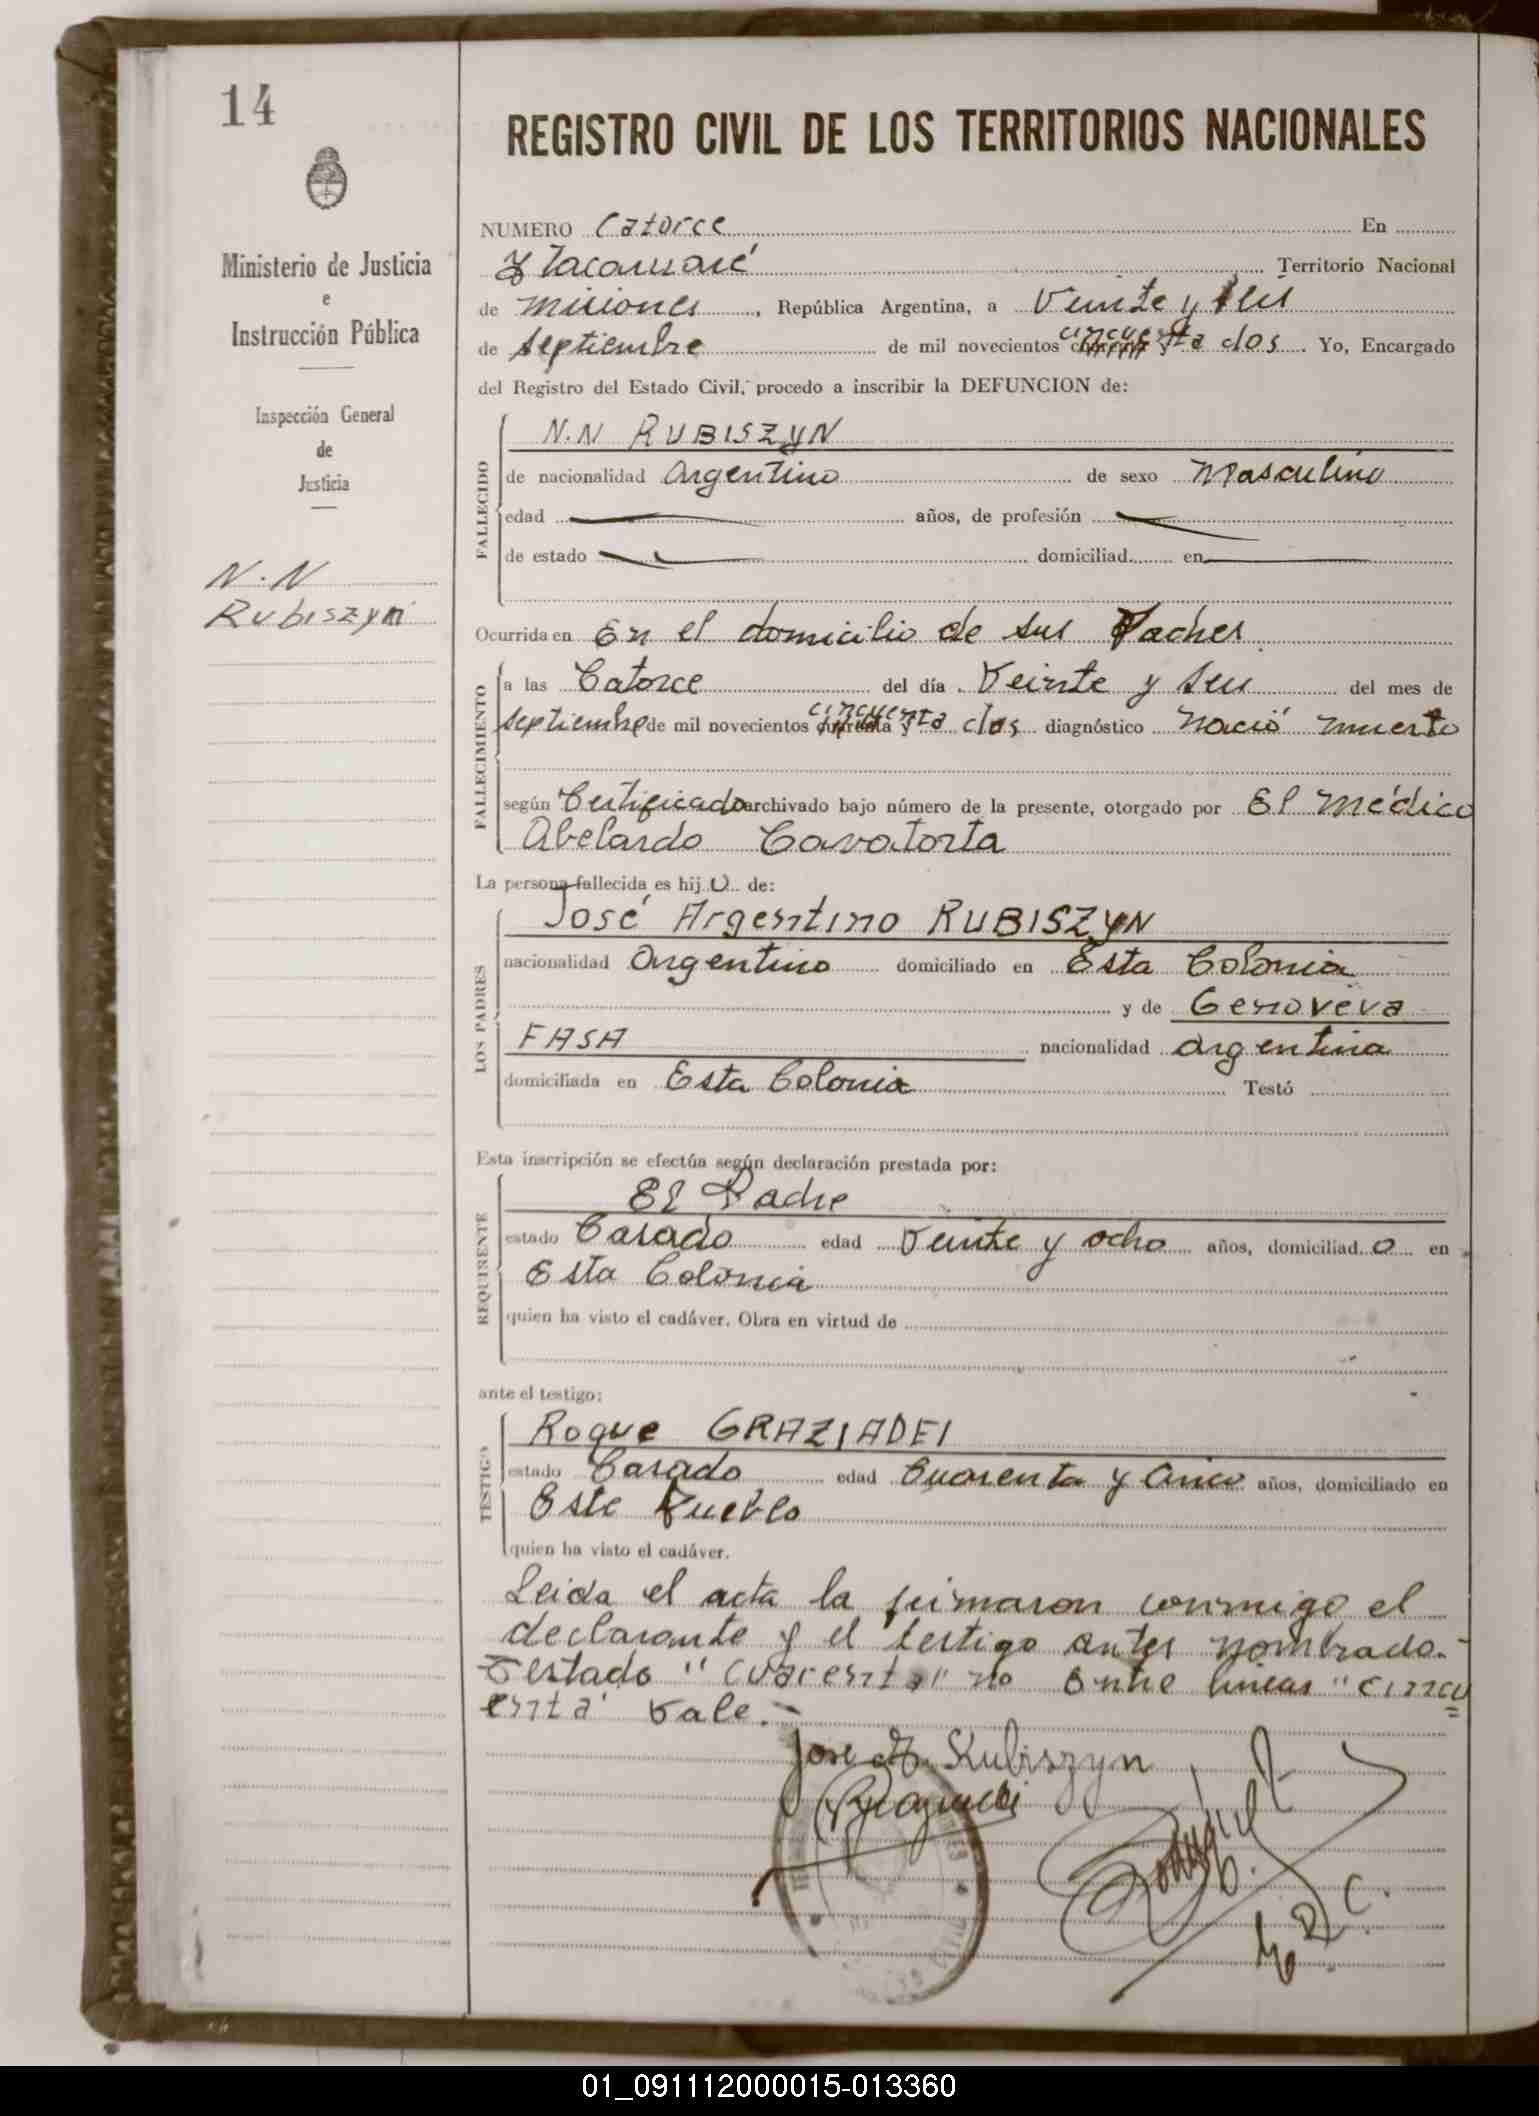 14
Ministerio de Justicia
e
Instrucción Pública
Inspección General
de
Justicia
N.N
Rubiszyn
REGISTRO CIVIL DE LOS TERRITORIOS NACIONALES
NUMERO Catorce En
Ytacaruaré Territorio Nacional
de Misiones, República Argentina, a Veinte y seis
de septiembre de mil novecientos cuarenta y cincuenta dos. Yo, Encargado
del Registro del Estado Civil, procedo a inscribir la DEFUNCION de:
FALLECIDO
N.N RUBISZYN
de nacionalidad Argentino de sexo Masculino
edad años, de profesión
de estado domiciliad en
Ocurrida en En el domicilio de sus Padres
FALLECIMIENTO
a las Catorce del día Veinte y seis del mes de
septiembre de mil novecientos cuarenta y cincuenta dos diagnóstico nació muerto
según Certificado archivado bajo número de la presente, otorgado por El médico
Abelardo Cavatorta
La persona fallecida es hijo de:
LOS PADRES
José Argentino RUBISZYN
nacionalidad Argentino domiciliado en Esta Colonia
y de Genoveva
FASA nacionalidad Argentina
domiciliada en Esta Colonia Testó
Esta inscripción se efectúa según declaración prestada por:
REQUIRENTE
El Padre
estado Casado edad Veinte y ocho años, domiciliado en
Esta Colonia
quien ha visto el cadáver. Obra en virtud de
ante el testigo:
TESTIGO
Roque GRAZIADEI
estado Casado edad Cuarenta y Cinco años, domiciliado en
Este Pueblo
quien ha visto el cadáver.
Leida el acta la firmaron conmigo el
declarante y el testigo antes nombrado.-
Testado "cuarenta" no Entre lineas "cincu
enta" vale.-
Jose A. Rubiszyn
CIVIL
E. R. C.
01_091112000015-013360